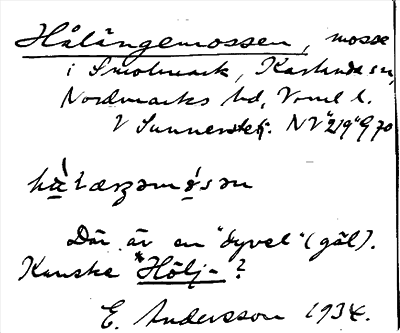 Hålängemossen, mosse
i Smolmark, Karlanda sn,
Nordmarks hd, Vrml l.
V Sunnerstek. NV "219" G 70
hὰ̀læŋəmósən
Där är en "dyvel" (göl).
Kanske "Hölj-"?
E. Andersson 1934.